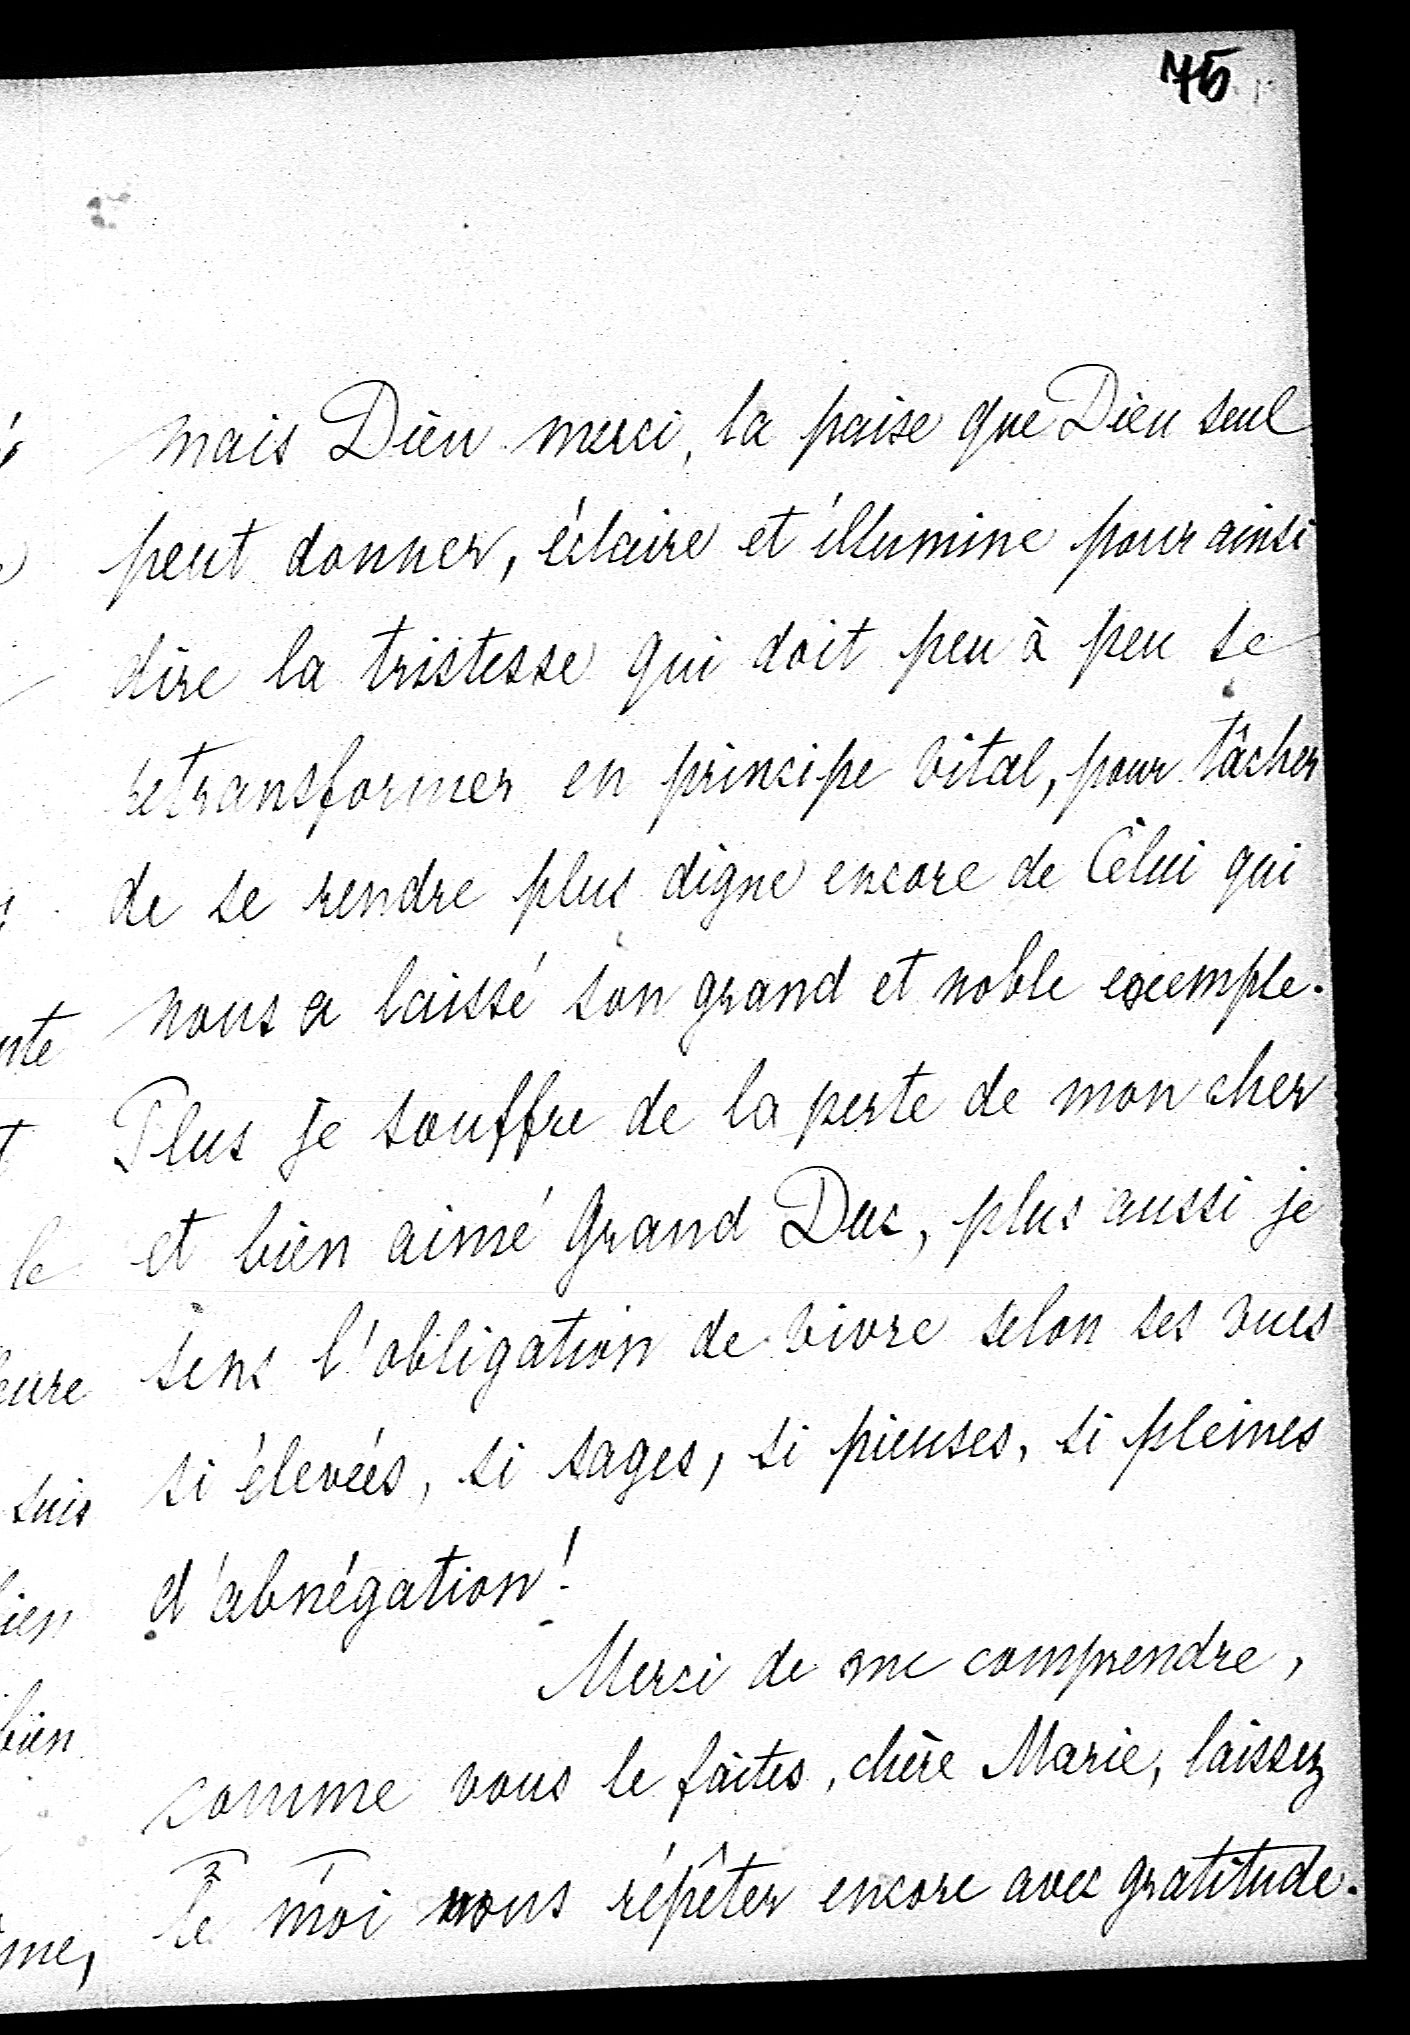 75
mais Dieu merci, la paise que Dieu seul
peut donner, éclaire et illumine pour ainsi
dire la tristesse qui doit peu à peu se
retransformer en principe vital, pour tâcher
de se rendre plus digne encore de Celui qui
nous a laissé son grand et noble exemple.
Plus je souffre de la perte de mon cher
et bien aimé Grand Duc, plus aussi je
sens l'obligation de vivre selon ses vues
si élevées, si sages, si pieuses, si pleines
d'abnégation!
Merci de me comprendre,
comme vous le faites, chère Marie, laissez
le moi vous répêter encore avec gratitude.
nte
le
eure
suis
ien
bien
me,